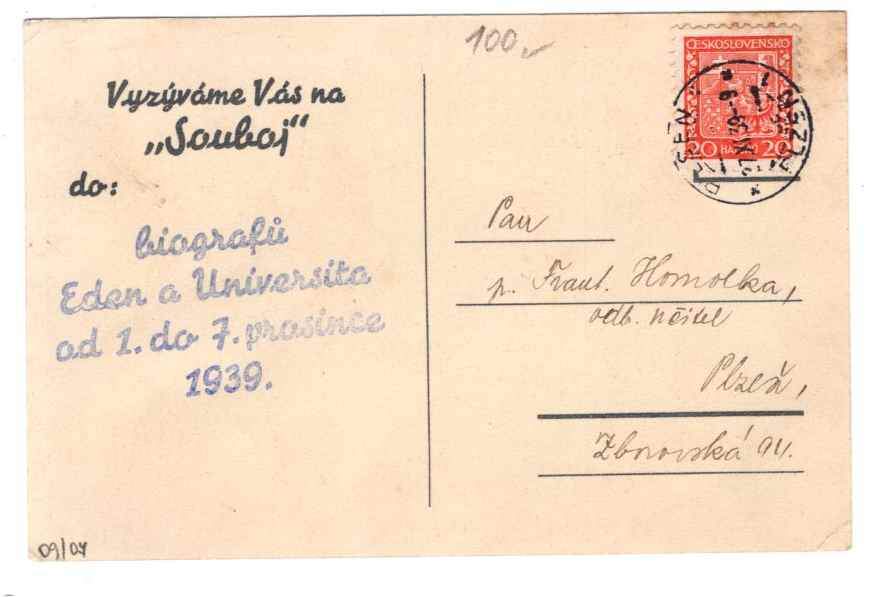 100,-
Vyzýváme Vás na
„Souboj“
do:
biografů
Eden a Universita
od 1. do 7. prosince
1939.
ČESKOSLOVENSKO
20 HALÉŘŮ 20
PLZEŇ
PLZEŇ 1
Pan
p. Frant. Homolka,
odb. učitel
Plzeň,
Zborovská
09/04